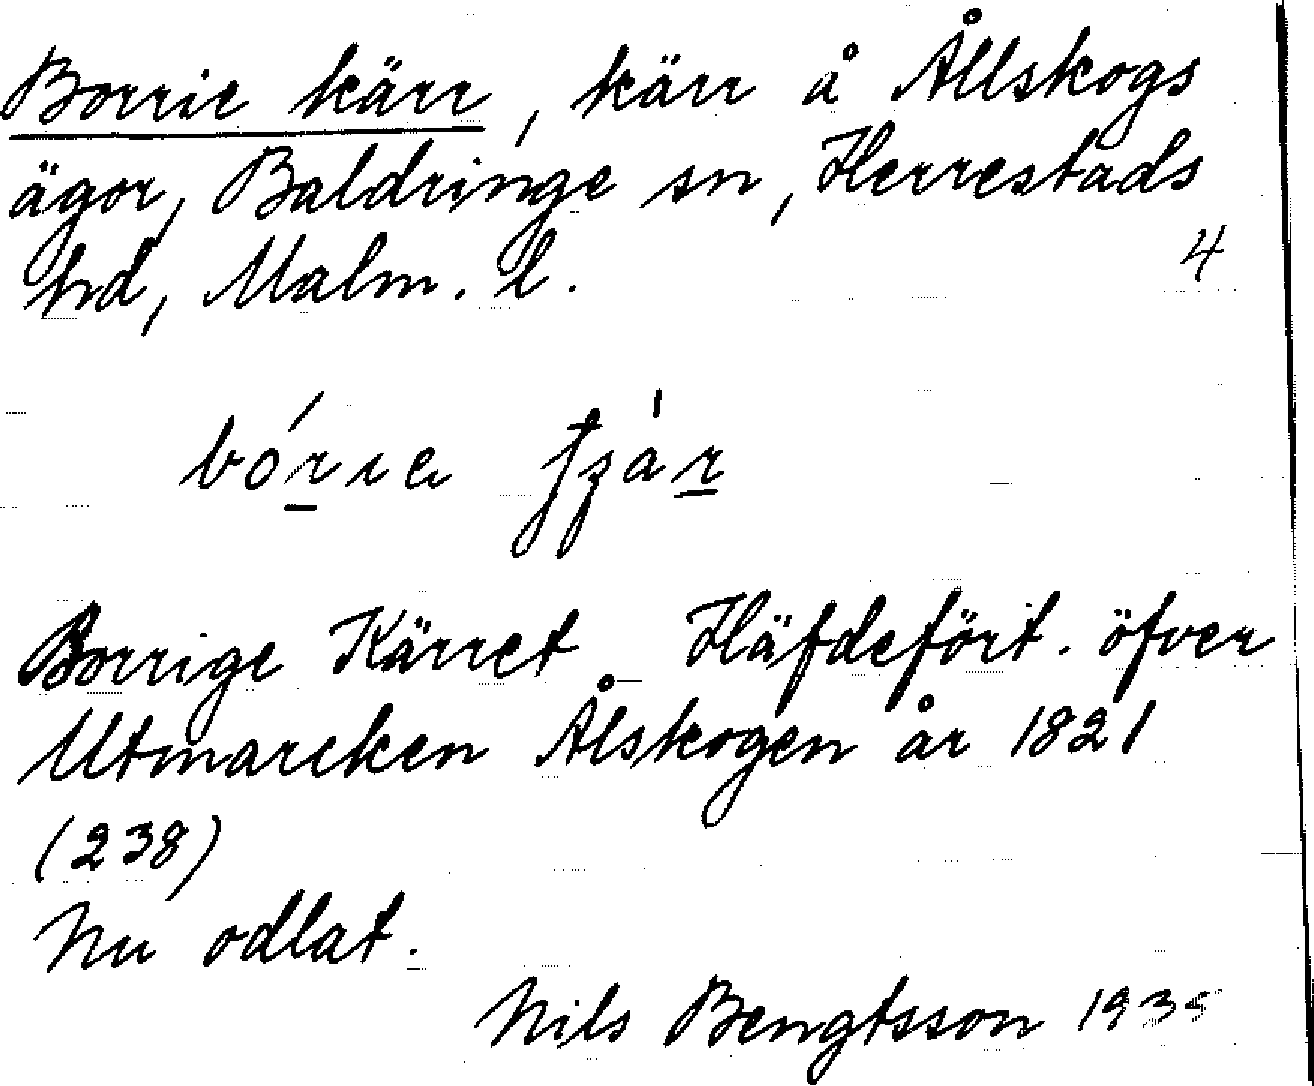 Borrie kärr, kärr å Ållskogs
ägor, Baldringe sn, Herrestads
hd, Malm. l.
4
Borrige Kärret Häfdefört. öfver
Utmarcken Ålskogen år 1821
(238)
Nu odlat.
Nils Bengtsson 1935